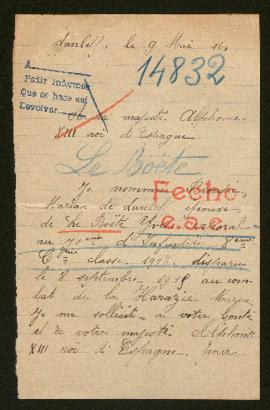 Lanleff, le 9 Mai 16.
14832
A
Pedir informes
Que se hace así
Devolver
A sa majesté Alphonse
XIII roi d'Espagne
Le Boëte
Je
Fecho
Marias de Lanleff épouse
e.a.e.
de Le Boëte Yves
au d'infanterie 8ème
Cie classe 1902 disparu
le 8 septembre 1915 au com
bat de la Harazée Marne
Je me sollicite à votre bonté
et à votre majesté Alphonse
XIII roi d'Espagne pour